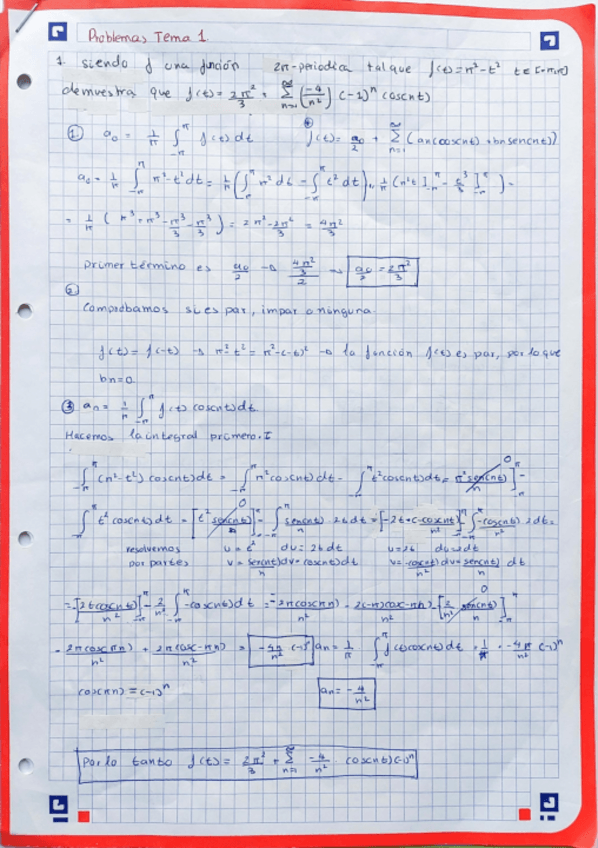 Problemas Tema 1
1. siendo f una función 2π-periodica tal que f(t)=π²-t² t∈[-π,π]
demuestra que f(t)= 2π²/3 + ∑ₙ₌₁^∞ (-4/n²) (-1)ⁿ cos(nt)
① a₀ = 1/π ∫_-π^π f(t) dt f(t)= a₀/2 + ∑ₙ₌₁^∞ (an cos(nt) + bn sen(nt))
a₀ = 1/π ∫_-π^π π²-t² dt = 1/π (∫_-π^π π² dt - ∫_-π^π t² dt) = 1/π (π²t ]_-π^π - t³/3 ]_-π^π) =
= 1/π ( π³+π³ - π³/3 - π³/3 ) = 2π² - 2π²/3 = 4π²/3
primer término es a₀/2 → (4π²/3)/2 → a₀/2 = 2π²/3
②
Comprobamos si es par, impar o ninguna.
f(t) = f(-t) → π²-t² = π²-(-t)² → la función f(t) es par, por lo que
bn=0
③ an = 1/π ∫_-π^π f(t) cos(nt) dt
Hacemos la integral primero. I
∫_-π^π (π²-t²) cos(nt) dt = ∫_-π^π π² cos(nt) dt - ∫_-π^π t² cos(nt) dt = π² sen(nt)/n ]_-π^π -
∫_-π^π t² cos(nt) dt = [t² sen(nt)/n]_-π^π - ∫_-π^π sen(nt)/n 2t dt = [-2t(-cos(nt))/n²]_-π^π - ∫_-π^π -cos(nt)/n² 2dt =
resolvemos u = t² du = 2t dt u = 2t du = dt
por partes v = sen(nt)/n dv = cos(nt) dt v = -cos(nt)/n² dv = sen(nt)/n dt
= [2t cos(nt)/n²]_-π^π - 2/n² ∫_-π^π -cos(nt) dt = -2π cos(πn)/n² - 2(-π) cos(-πn)/n² - [2/n² sen(nt)/n]_-π^π
- 2π cos(πn)/n² + 2π cos(-πn)/n² = -4π/n² (-1)ⁿ an = 1/π ∫_-π^π f(t) cos(nt) dt = 1/π · -4π/n² (-1)ⁿ
cos(πn) = (-1)ⁿ an = -4/n²
Por lo tanto f(t) = 2π²/3 + ∑ₙ₌₁^∞ -4/n² cos(nt) (-1)ⁿ